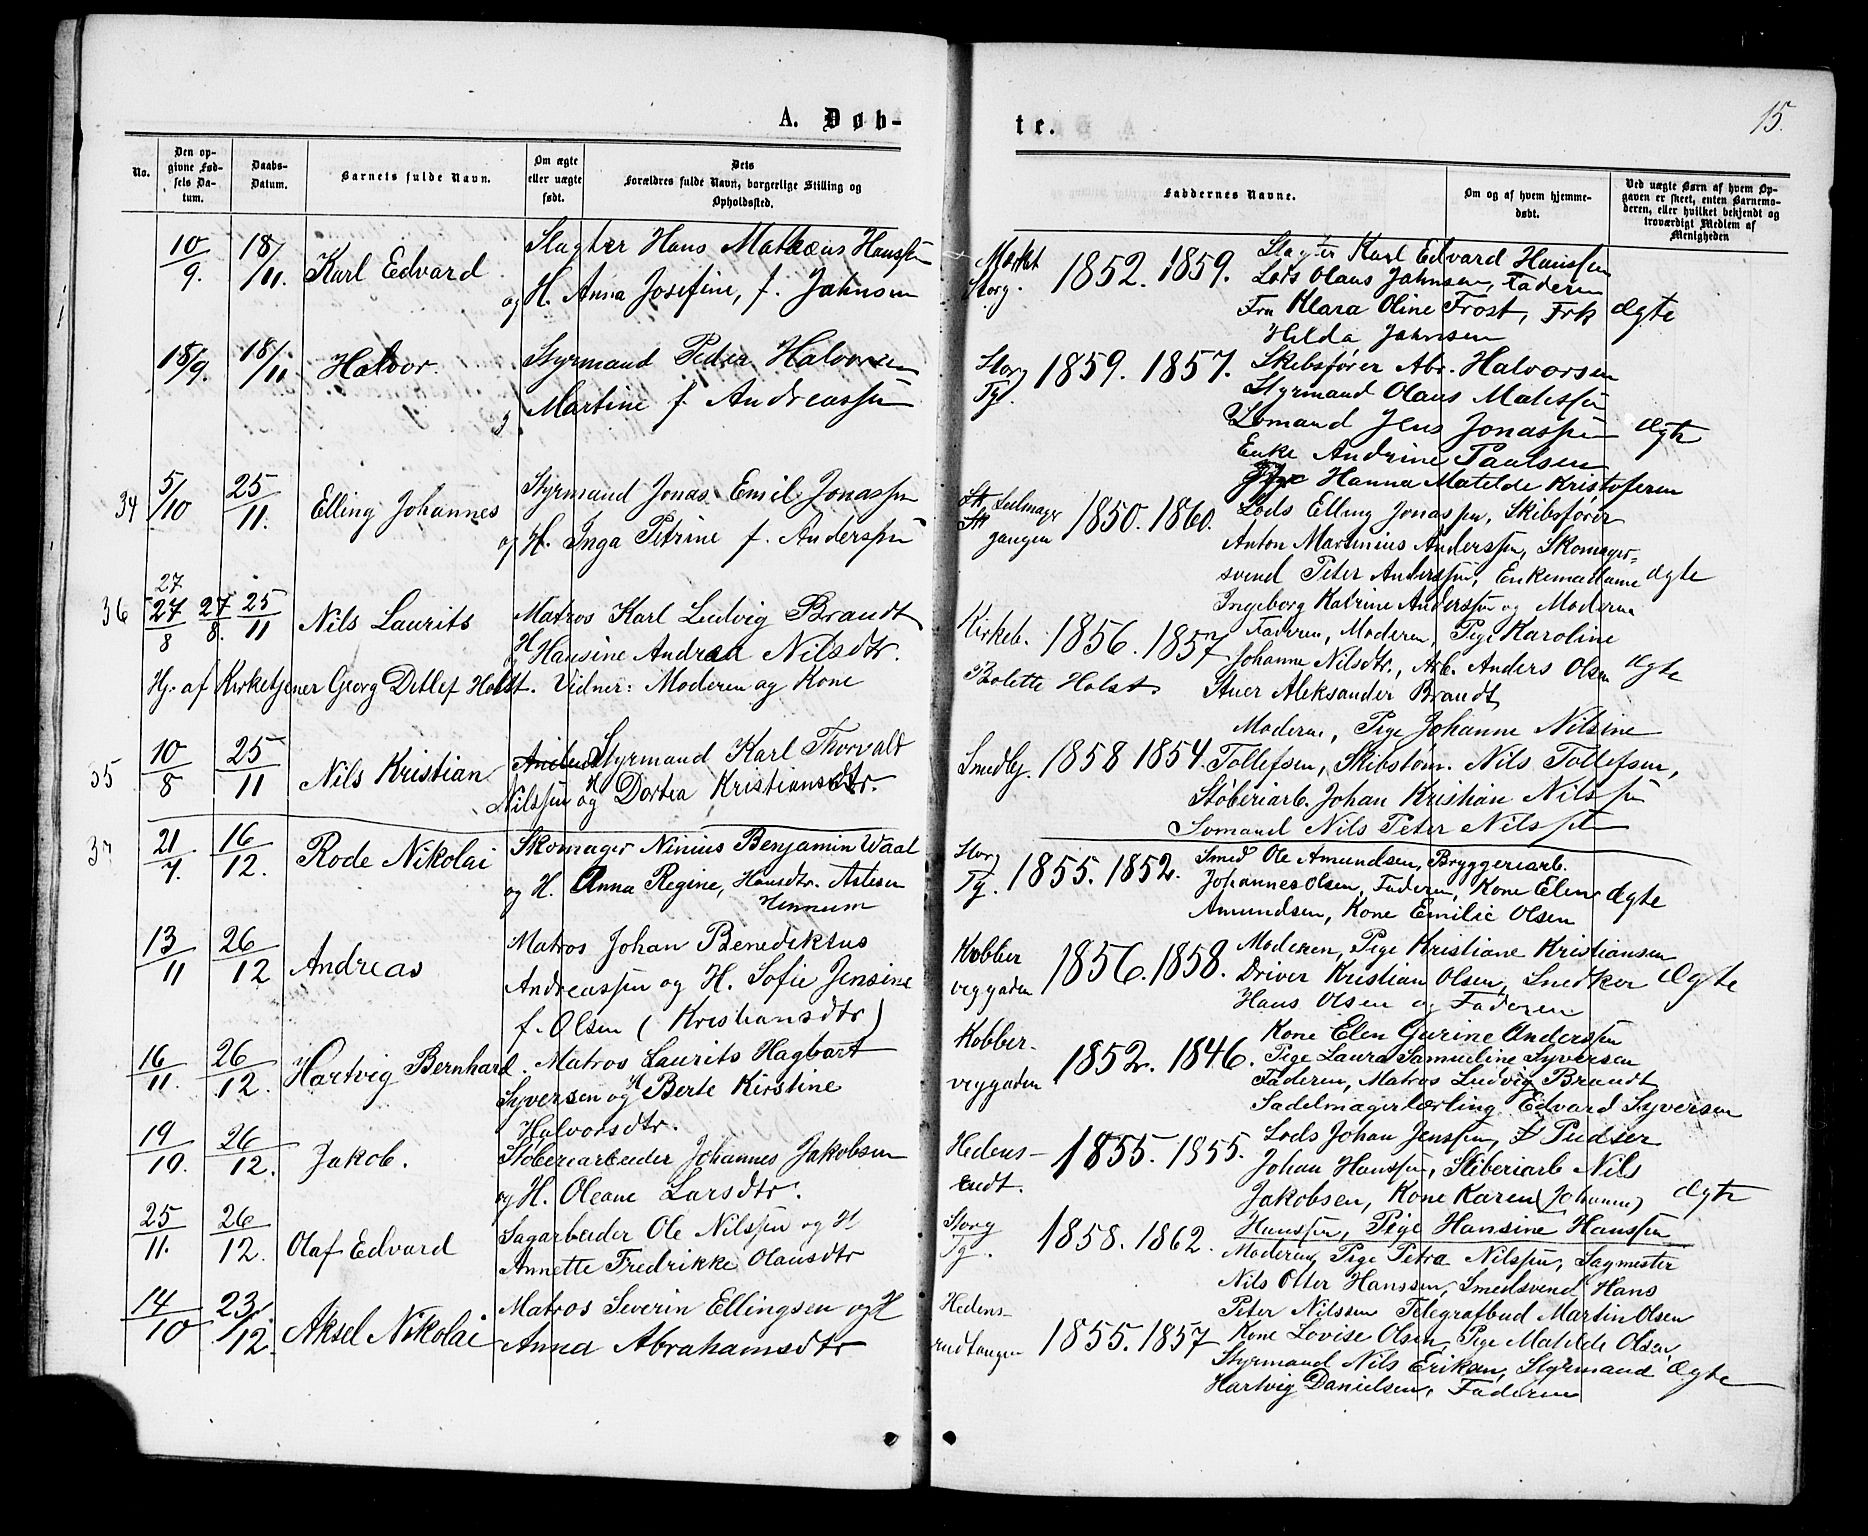 A. Døb-
te.
15.
No.
Den op-
givne Fød-
sels Da-
tum.
Daabs-
Datum.
Barnets fulde Navn.
Om ægte
eller uægte
født.
Dets
Forældres fulde Navn, borgerlige Stilling og
Opholdssted.
Faddernes Navne.
Om og af hvem hjemme-
døbt.
Ved uægte Børn af hvem Op-
gaven er skeet, enten Barnemo-
deren, eller hvilket bekjendt og
troværdigt Medlem af
Menigheden
10/9. 18/11. Karl Edvard
Slagter Hans Mathæus Hanssen
og H. Anna Josefine, f. Jahnsen
Storg. 1852. 1859.
Slagter Karl Edvard Hanssen
Lods Olaus Jahnsen, Faderen
Fru Klara Oline Frost, Frk
Hilda Jahnsen
Ægte
18/9. 18/11 Halvor.
Styrmand Peder Halvorsen
Martine f. Andreassen
Storg
Tg. 1859. 1857.
Skibsfører Abr. Halvorsen
Styrmand Olaus Mathssen
Somand Jens Jonassen
Enke Andrine Paulsen
Hanna Matilde Kristofersen
Ægte
34 5/10 25/11. Elling Johannes
Styrmand Jonas Emil Jonassen
og H. Inga Petrine f. Anderssen
gangen 1850. 1860.
Lods Elling Jonassen, Skibsfører
Anton Marthinius Anderssen, Skomager-
svend Peter Anderssen, Enkemadame
Ingeborg Katrine Anderssen og Moderen
Ægte
36 27
27/8 27/8. 25/11 Nils Laurits
Matros Karl Ludvig Brandt
og H Hansine Andrea Nilsdtr.
Kirkeb. 1856. 1857
Faderen, Moderen, Pige Karoline
Johanne Nilsdtr., Arb. Anders Olsen
Stuer Aleksander Brandt
Ægte
Hj. af Kirketjener Georg Detlef Holst. Vidner: Moderen og Kone
Bolette Holst
35 10/8 25/11 Nils Kristian
Styrmand Karl Thorvald
Nilssen og H Dortea Kristiansdtr.
Smedbj. 1858 1854.
Moderen, Pige Johanne Nilsine
Tollefsen, Skibstøm. Nils Tollefsen,
Støberiarb. Johan Kristian Nilssen
Somand Nils Peter Nilssen
37 21/7. 16/12. Rode Nikolai
Skomager Ninius Benjamin Waal
og H. Anna Regine, Hansdtr. Astesen
Hennum
Storg
Tg. 1855. 1852.
Smed Ole Amundsen, Bryggeriarb.
Johannes Olsen, Faderen, Kone Elen
Amundsen, Kone Emilie Olsen
Ægte
13/11 26/12 Andreas
Matros Johan Benediktus
Andreassen og H. Sofie Jensine
f. Olsen (Kristiansdtr)
Kobber
veggaden 1856. 1858.
Moderen, Pige Kristiane Kristiansen
Driver Kristian Olsen, Snedker
Hans Olsen og Faderen
Ægte
16/11. 26/12. Hartvig Bernhard.
Matros Laurits Hagbart
Syversen og H Berte Kirstine
Halvorsdtr.
Kobber-
veggaden 1852. 1846.
Kone Elen Gurine Anderssen
Pige Laura Samueline Syversen
Faderen, Matros Ludvig Brandt
Sadelmagerlærling Edvard Syversen
19/10. 26/12. Jakob.
Støberiarbeider Johannes Jakobsen
og H. Oleane Larsdtr.
Hedens-
rudt. 1855. 1855.
Lods Johan Jenssen, Pudser
Johan Hanssen, Støberiarb Nils
Jakobsen, Kone Karen (Johanne)
Hanssen, Pige Hansine Hanssen
Ægte
25/11. 26/12. Olaf Edvard
Sagarbeider Ole Nilssen og H
Annette Fredrikke Olausdtr
Storg
Tg. 1858. 1862.
Moderen, Pige Petra Nilssen, Sagmester
Nils Otter Hanssen, Smedsvend Hans
Peter Nilssen Telegrafbud Martin Olsen
14/10 23/12. Aksel Nikolai
Matros Severin Ellingsen og H
Anna Abrahamsdtr
Hedens-
rudtangen 1855. 1857
Kone Lovise Olsen, Pige Matilde Olsen,
Styrmand Nils Eriksen, Styrmand
Hartvig Danielsen, Faderen
Ægte